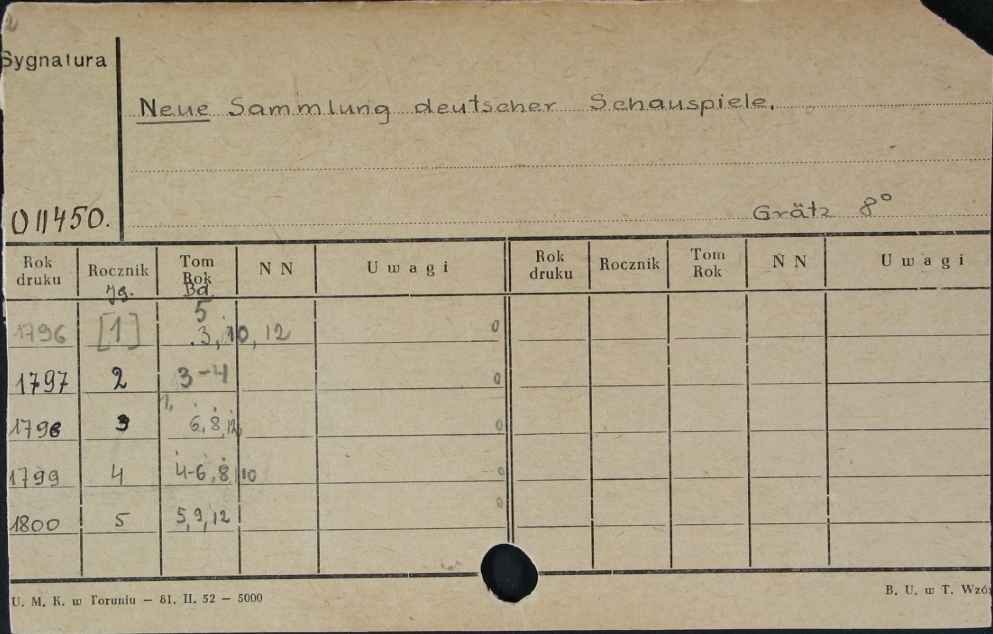 Sygnatura
Neue Sammlung deutscher Schauspiele.
011450.
Grätz 8°
Rok druku Rocznik Tom Rok N N Uwagi Rok druku Rocznik Tom Rok N N Uwagi
Jg. Bd
5
1796 [1] 3, 10, 12 0
1797 2 3-4 0
1,
1798 3 6, 8, 12 0
1799 4 4-6, 8, 10 0
1800 5 5, 9, 12 0
U. M. K. w Toruniu — 81. II. 52 — 5000
B. U. w T. Wzó